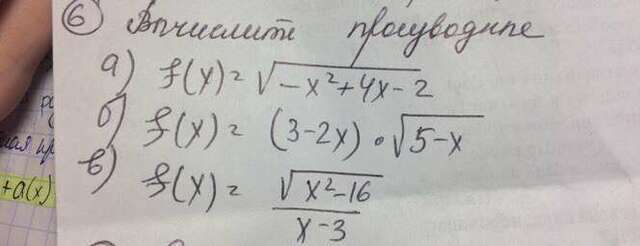 6 Вычислите производные
а) f(x) = √(-x²+4x-2)
б) f(x) = (3-2x) • √(5-x)
в) f(x) = √(x²-16) / (x-3)
+a(x)